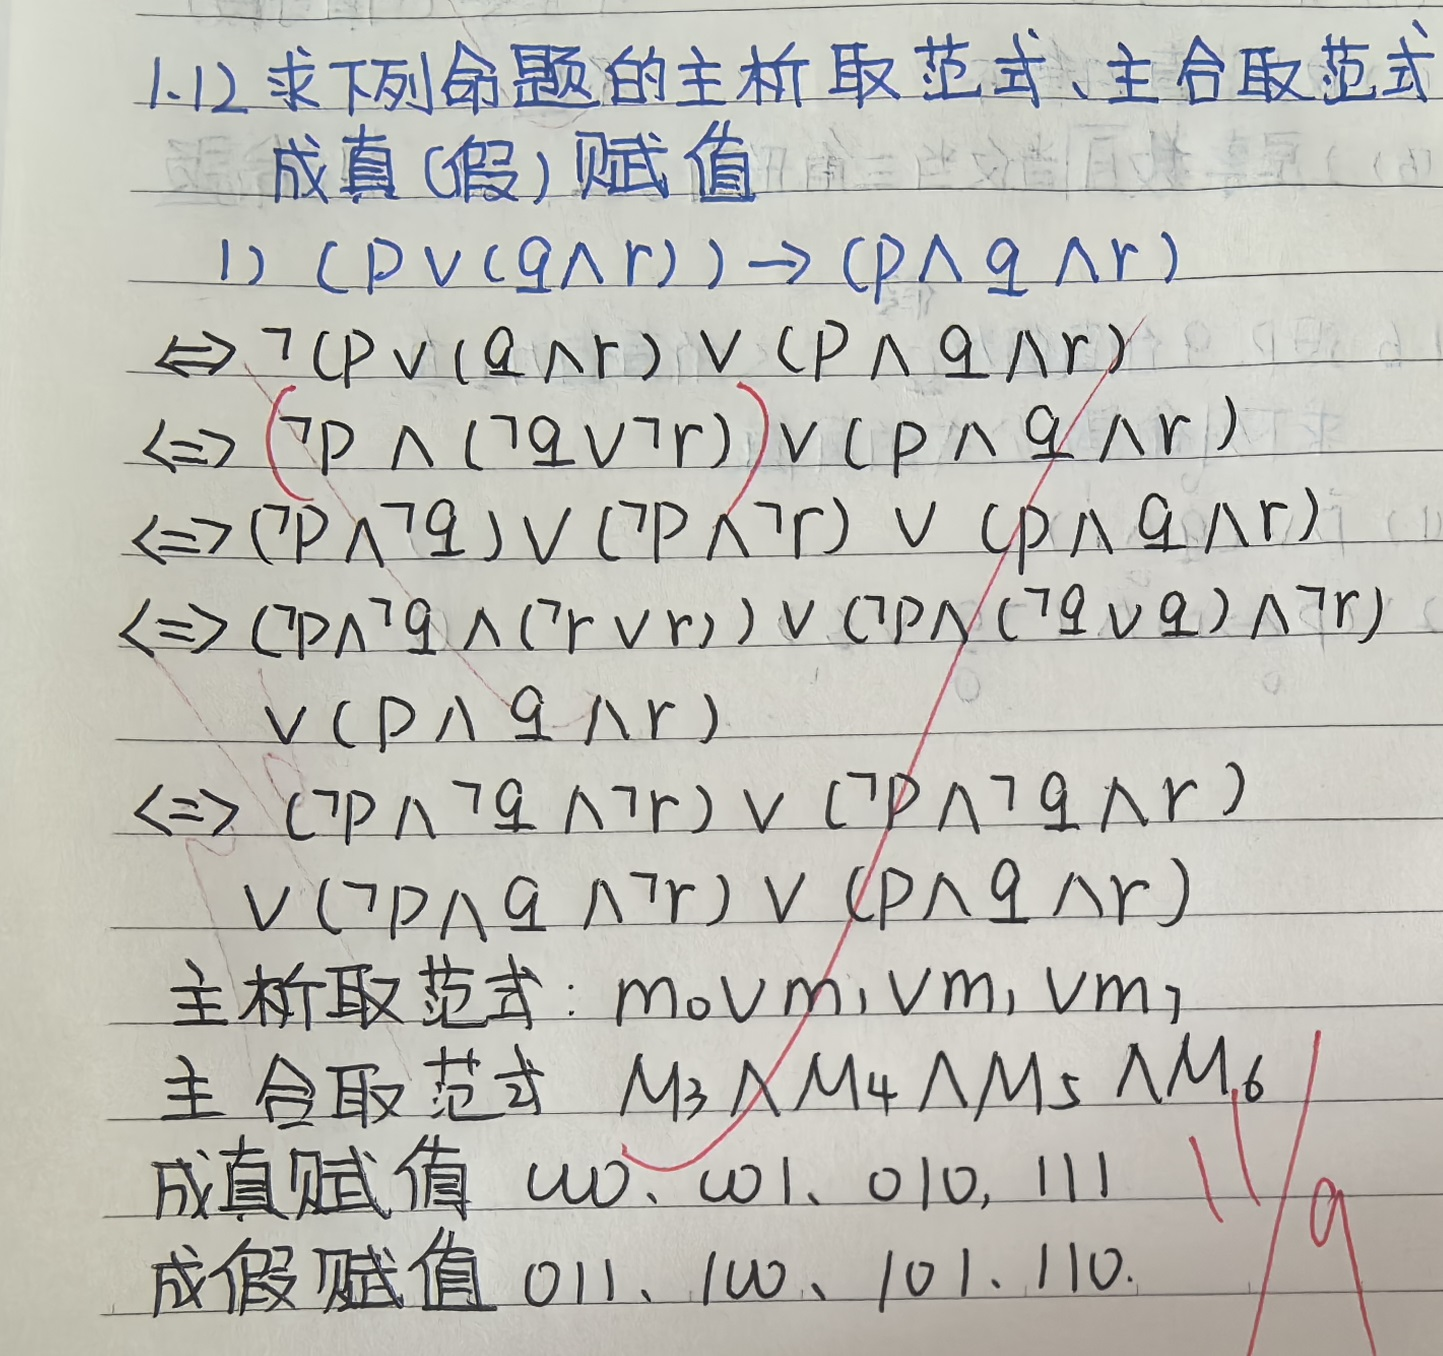 1.12 求下列命题的主析取范式、主合取范式
成真(假)赋值
1) (p∨(q∧r))→(p∧q∧r)
⇔ ¬(p∨(q∧r)∨(p∧q∧r)
<=> (¬p∧(¬q∨¬r))∨(p∧q∧r)
<=> (¬p∧¬q)∨(¬p∧¬r)∨(p∧q∧r)
<=> (¬p∧¬q∧(¬r∨r))∨(¬p∧(¬q∨q)∧¬r)
∨(p∧q∧r)
<=> (¬p∧¬q∧¬r)∨(¬p∧¬q∧r)
∨(¬p∧q∧¬r)∨(p∧q∧r)
主析取范式: m₀∨m₁∨m₁∨m₇
主合取范式 M₃∧M₄∧M₅∧M₆
成真赋值 000、001、010, 111
成假赋值 011、100、101、110.
11/9